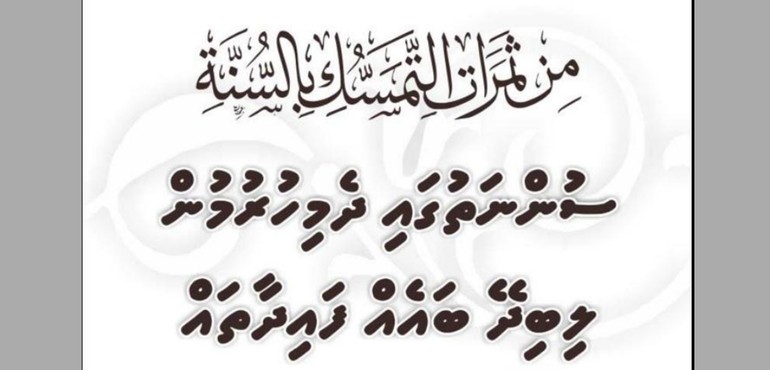 مِن ثَمَرَاتِ التَّمَسُّكِ بِالسُّنَّةِ
ސުންނަތުގައި ދެމިހުރުމުން
ލިބިދޭ ބައެއް ފައިދާތައް